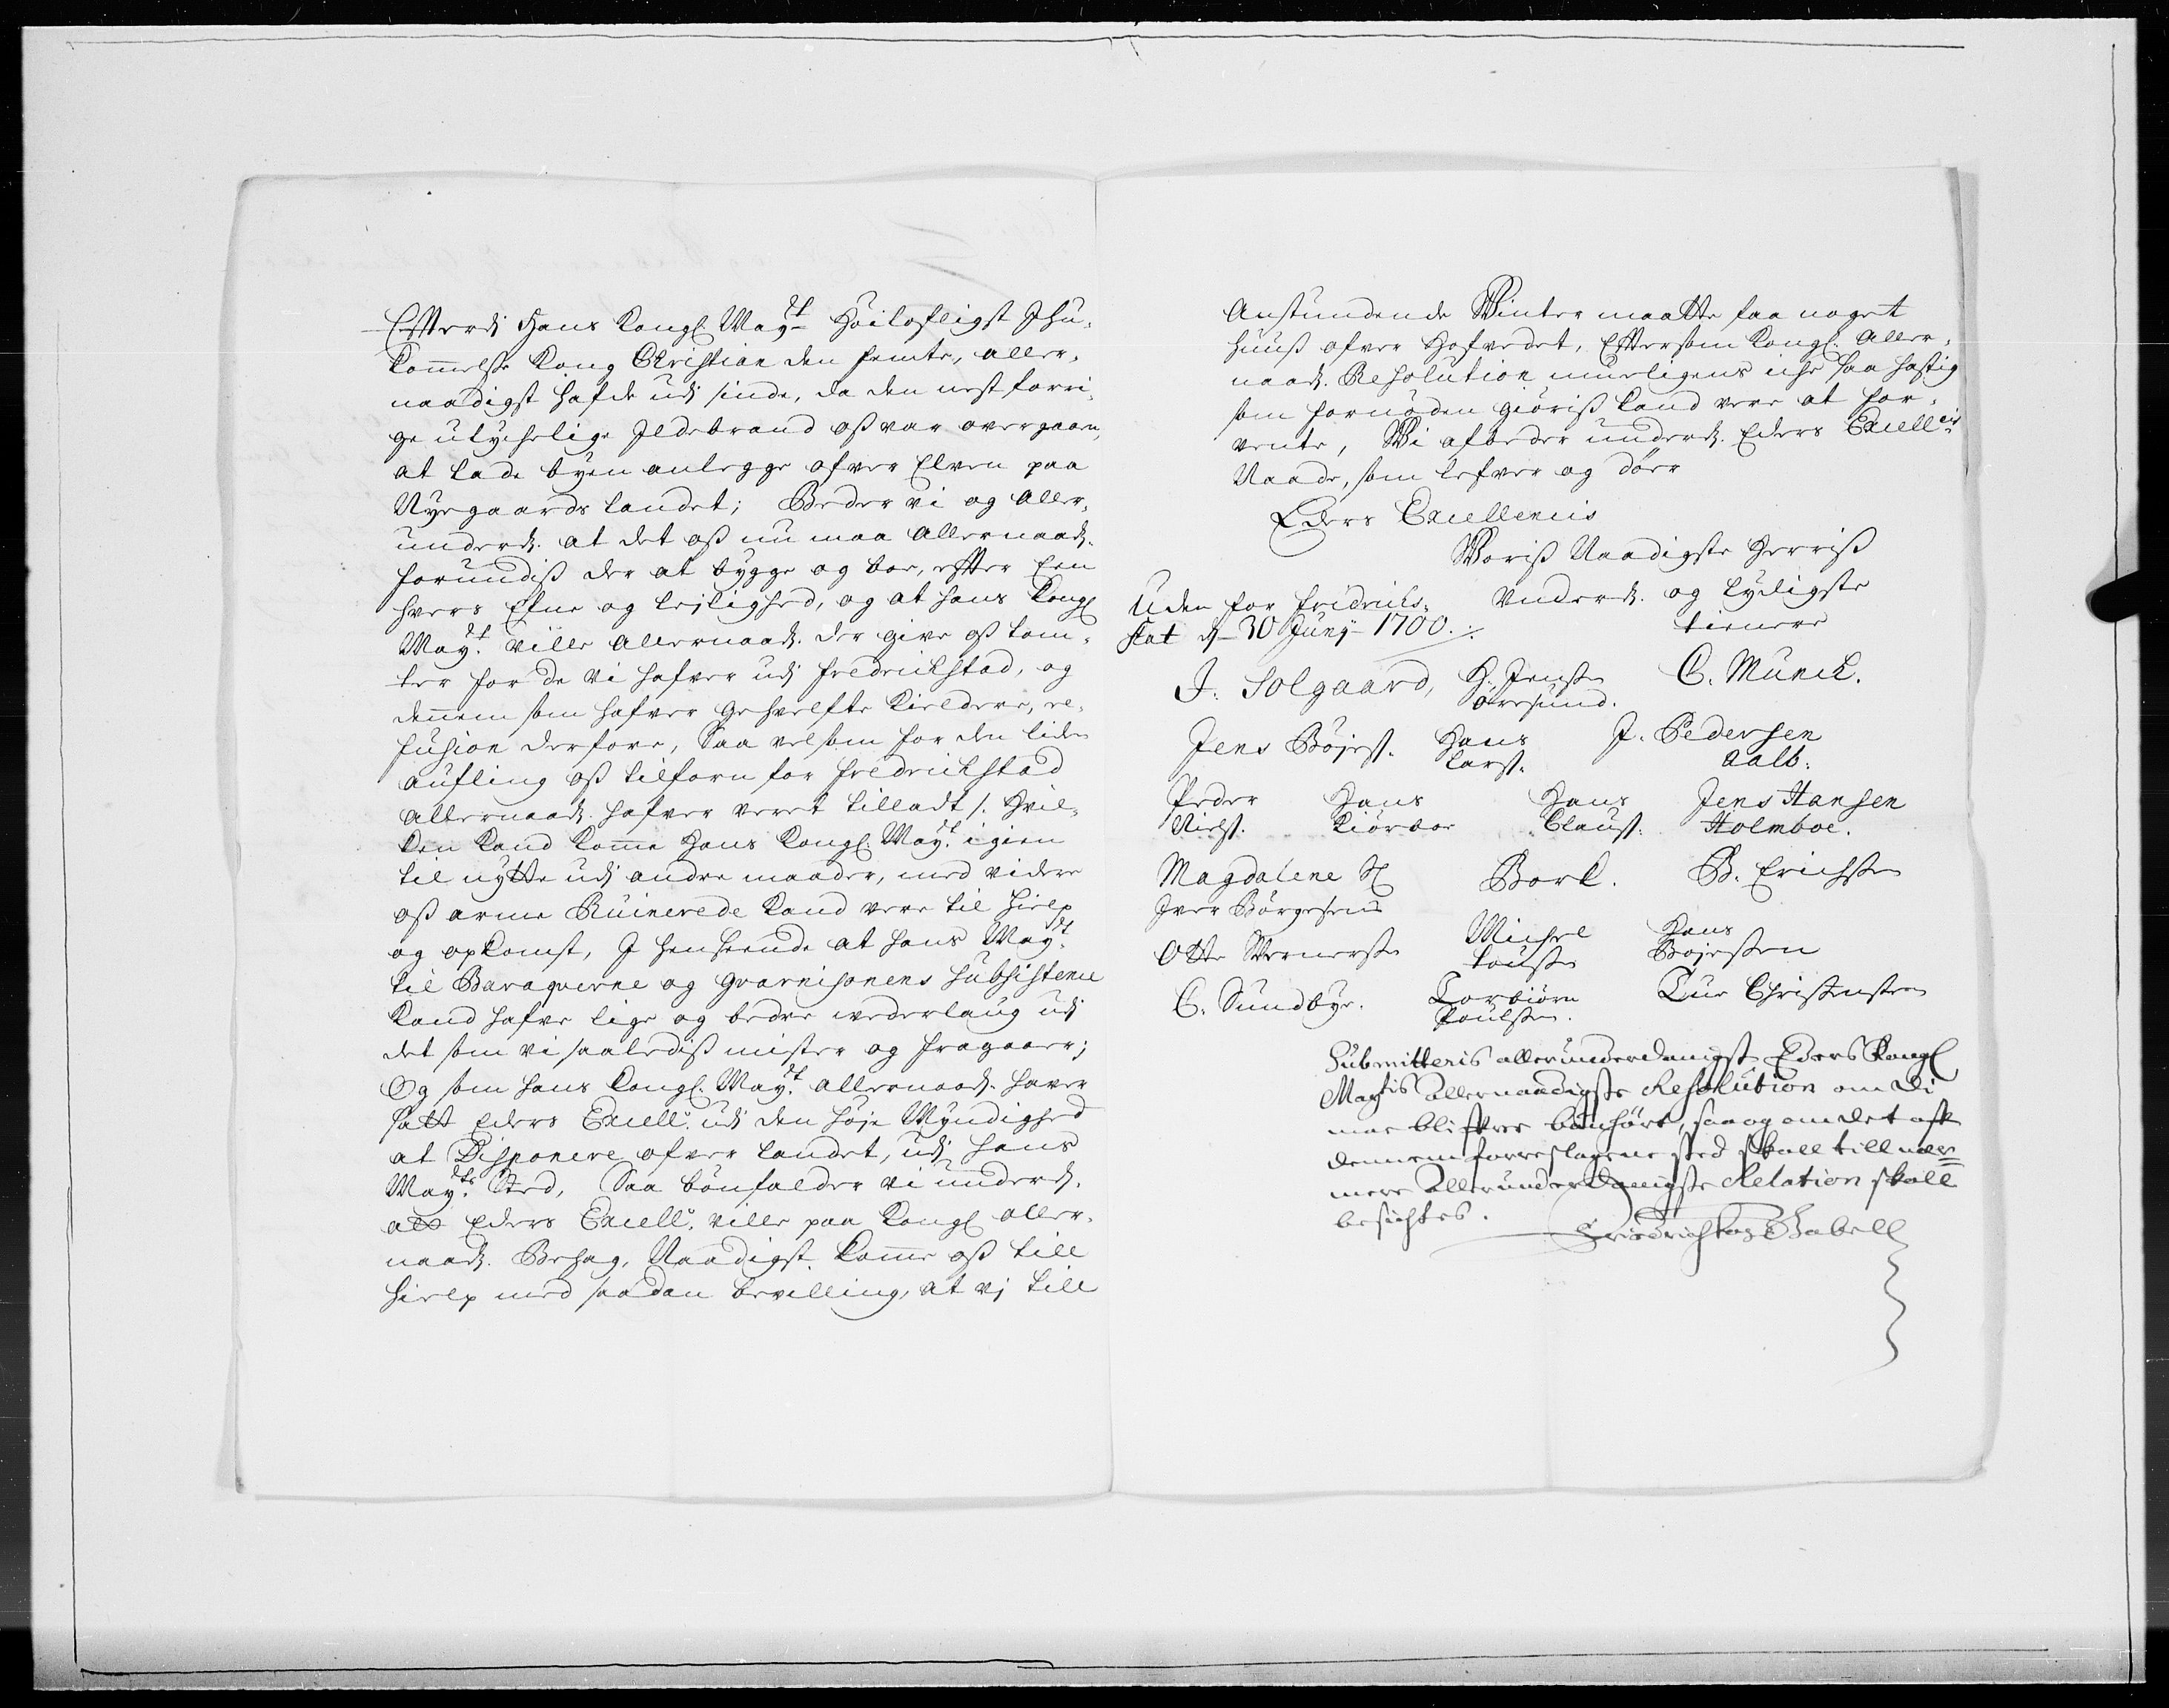 Efterdj Hans Kongl. May.tt Høilofligst Ihu-
kommelse Kong Christian den femte, aller-
naadigst hafde udj sinde, da den nest forri-
ge ulychelige Ildebrand oss var overgaaen,
at lade byen anlegge ofver Elven paa
Nyegaards landet; Beder vi og aller-
underd. at det oss nu maa Allernaad.
forundiss der at bygge og boe, efter Een
hvers Efne og lejlighed, og at hans Kongl
May.tt ville Allernaad. der give oss tom-
ter for de vi hafver udj Fredrichstad, og
dennem som hafver Ghvelfte Kieldere, re-
fusion derfore, Saa velsom for den liden
aufling oss tilforn for Fredrichstad
Allernaad. hafver veret tilladt /. Hvil-
ken Kand komme Hans Kongl. May.tt igien
til nytte udj andre maader, med videre
oss arme Ruinerede Kand vere til hielp
og opkomst, I henseende at hans May.tt
til Baraqverne og Gvarnisonens Subsistence
Kand hafve lige og bedre vederlaug udj
det som vi saalediss mister og fragaaer;
Og som hans Kongl. May.tt allernaad. haver
satt Eders Excell. udj den høje Myndighed
at Disponere ofver landet, udj hans
May.ts Sted, Saa bønfalder vi underd.
att Eders Excell. ville paa Kongl aller-
naad. Behag, Naadigst komme oss till
hielp med saadan bevilling, at vj till
Anstundende Winter maatte faa noget
huuss ofver Hofvedet, Eftersom Kongl. Aller-
naad. Resolution mueligens iche saa hastig
som fornøden giøriss Kand vere at for-
vente, Wi afbeder underd. Eders Excell.cis
Naade, som lefver og døer
Eders Excellencis
Woriss Naadigste Herriss
Underd. og lydigste
tienere
Uden for Fridrichs-
stat d. 30 Junÿ 1700.
J. Solgaard, H. Jensen Øresund. C. Munck.
Jens Bøjes. Hans Lars. J. Pedersen Aalb:
Peder Niels. Hans Kiørboe Hans Claus. Jens Hansen Holmboe.
Magdalene Sl Iver Børgesens Bork. B. Erichsen
Otte Wernersen Michel Hans Bojesen
C. Sundbye. Torbiørn Poulsen. Tue Christensen
Submitteris allerunderdanigst Eders Kongl
Maytis Allernaadigste Resolution om di
maa blifver bønhørt, saa og om det aff
dennem forreslagene sted skall till nær-
mere Allerunderdanigste Relation skall
besichtes.
Friderich Gabell